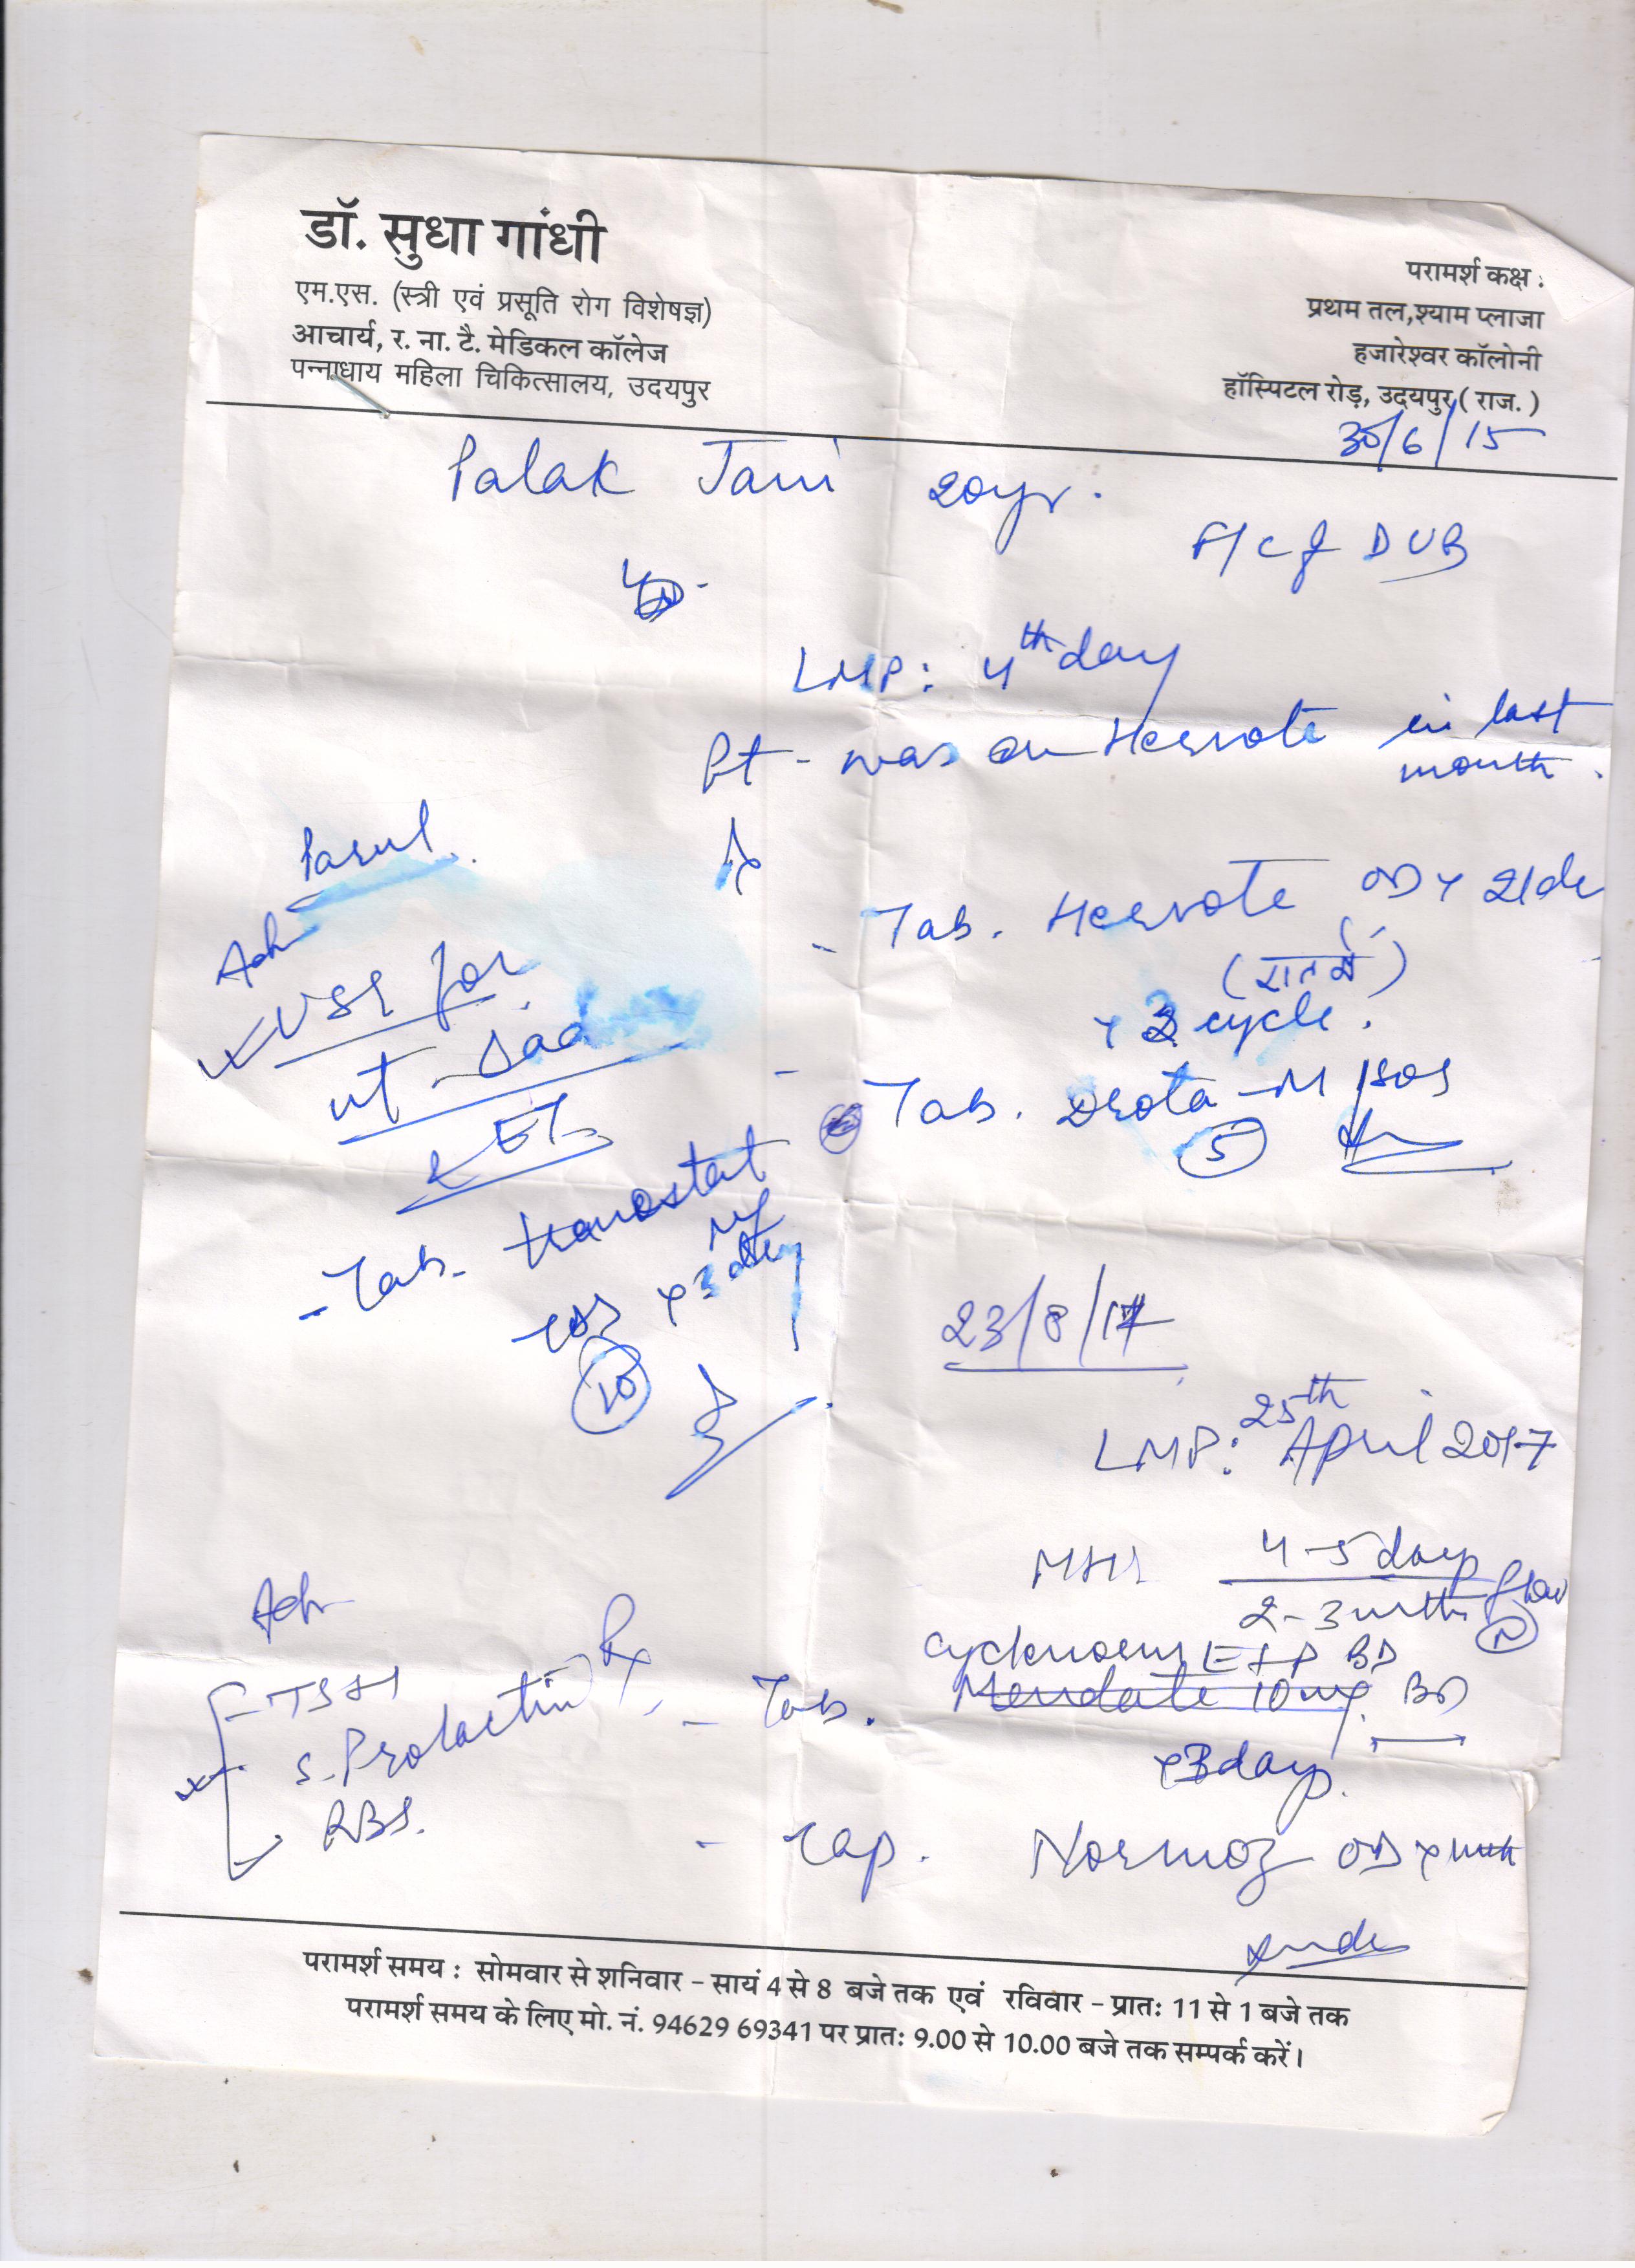 डॉ. सुधा गांधी
एम.एस. (स्त्री एवं प्रसूति रोग विशेषज्ञ)
आचार्य, र. ना. टै. मेडिकल कॉलेज
पन्नाधाय महिला चिकित्सालय, उदयपुर
परामर्श कक्ष :
प्रथम तल,श्याम प्लाजा
हजारेश्वर कॉलोनी
हॉस्पिटल रोड़, उदयपुर ( राज. )
30/6/15
Palak Jani 20yr.
DUB
LMP: 4th day
Pt - was on in last
month.
Parul
Adv
USG for
ut
& ET
- Tab. OD x 21
(रात में)
x 3 cycle.
- Tab. Drota-M / SOS
5
- Tab. 
x 3 day
10
23/8/17
LMP: 25th April 2017
4-5 day
2-3 mth flow
Adv
- TSH
S. Prolactin
RBS.
Rx
E+P BD
- Tab. 10 mg BD
x 3 days.
- Cap. Normoz OD x
परामर्श समय : सोमवार से शनिवार - सायं 4 से 8 बजे तक एवं रविवार - प्रातः 11 से 1 बजे तक
परामर्श समय के लिए मो. नं. 94629 69341 पर प्रातः 9.00 से 10.00 बजे तक सम्पर्क करें।